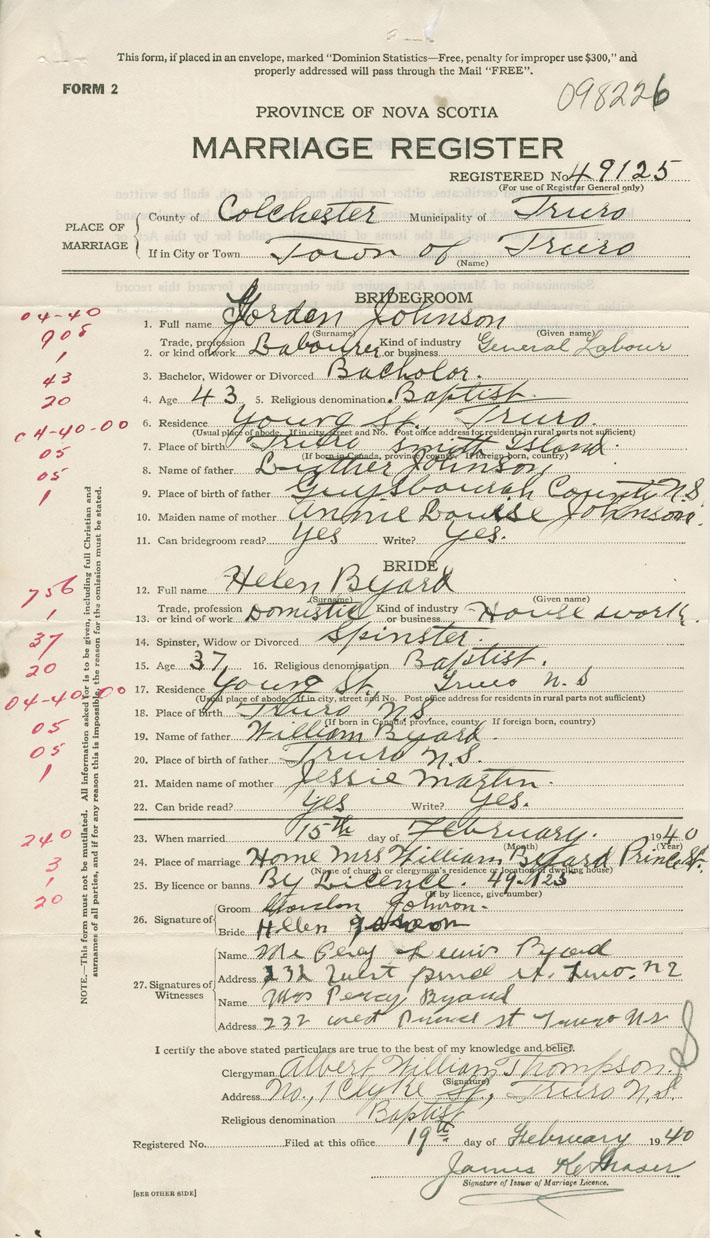 This form, if placed in an envelope, marked "Dominion Statistics—Free, penalty for improper use $300," and
properly addressed will pass through the Mail "FREE".
FORM 2
098226
PROVINCE OF NOVA SCOTIA
MARRIAGE REGISTER
REGISTERED No. 49125
(For use of Registrar General only)
PLACE OF MARRIAGE
County of Colchester Municipality of Truro
If in City or Town Town of Truro
(Name)
BRIDEGROOM
04-40
1. Full name Gordon Johnson
(Surname) (Given name)
908
Trade, profession Kind of industry
2. or kind of work Labourer or business General Labour
1
3. Bachelor, Widower or Divorced Bachelor.
43
4. Age 43 5. Religious denomination Baptist.
20
6. Residence Young St. Truro.
(Usual place of abode. If in city, street and No. Post office address for residents in rural parts not sufficient)
04-40-00
7. Place of birth Truro Smith Island.
(If born in Canada, province, county. If foreign born, country)
05
8. Name of father Luther Johnson
05
9. Place of birth of father Guysbourah County N.S.
1
10. Maiden name of mother Annie Louise Johnson.
11. Can bridegroom read? Yes Write? Yes.
BRIDE
12. Full name Helen Byard
(Surname) (Given name)
756
Trade, profession Kind of industry
13. or kind of work Domestic or business House work.
1
14. Spinster, Widow or Divorced Spinster.
37
15. Age 37 16. Religious denomination Baptist.
20
17. Residence Young St., Truro N.S
(Usual place of abode. If in city, street and No. Post office address for residents in rural parts not sufficient)
04-40-00
18. Place of birth Truro N.S
(If born in Canada, province, county. If foreign born, country)
05
19. Name of father William Byard.
05
20. Place of birth of father Truro N.S.
1
21. Maiden name of mother Jessie Martin.
22. Can bride read? Yes Write? Yes.
240
23. When married 15th day of February. 1940
(Month) (Year)
3
24. Place of marriage Home Mrs William Byard Prince St.
(Name of church or clergyman's residence or location of dwelling house)
1
25. By licence or banns. By Licence. 49-125
(If by licence, give number)
20
26. Signature of
Groom Gordon Johnson.
Bride Helen
27. Signatures of Witnesses
Name Mr Percy Lewis Byard
Address 232 West prince st. Truro. N S
Name Mrs Percy Byard
Address 232 west Prince st Truro N S
I certify the above stated particulars are true to the best of my knowledge and belief.
Clergyman Albert William Thompson.
(Signature)
Address No., 1 Clyke St., Truro N.S.
Religious denomination Baptist
Registered No. Filed at this office 19th day of February 1940
James K. Fraser
Signature of Issuer of Marriage Licence.
[SEE OTHER SIDE]
NOTE.—This form must not be mutilated. All information asked for is to be given, including full Christian and
surnames of all parties, and if for any reason this is impossible the reason for the omission must be stated.